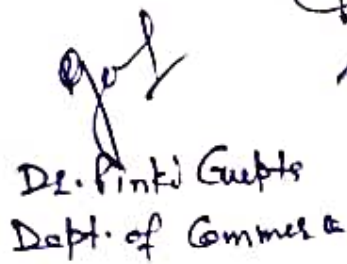 Dr. Pinki Gupta
Dept. of Commerce